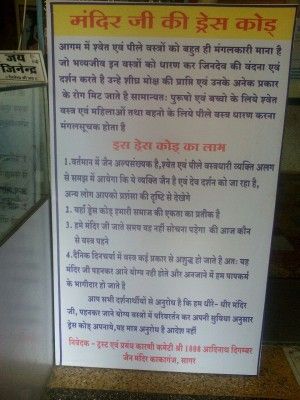 जय
जिनेन्द्र
मंदिर जी की ड्रेस कोड्
आगम में श्वेत एवं पीले वस्त्रों को बहुत ही मंगलकारी माना है
जो भव्यजीव इन वस्त्रों को धारण कर जिनदेव की वंदना एवं
दर्शन करते है उन्हे शीघ्र मोक्ष की प्राप्ति एवं उनके अनेक प्रकार
के रोग मिट जाते है सामान्यतः पुरूषो एवं बच्चो के लिये श्वेत
वस्त्र एवं महिलाओं तथा बहनो के लिये पीले वस्त्र धारण करना
मंगलसूचक होता है
इस ड्रेस कोड् का लाभ
1.वर्तमान में जैन अल्पसंख्यक है,श्वेत एवं पीले वस्त्रधारी व्यक्ति अलग
से समझ में आयेगा कि ये व्यक्ति जैन है एवं देव दर्शन को जा रहा है,
अन्य लोग आपको प्रशंसा की दृष्टि से देखेगे
2. यहाँ ड्रेस कोड् हमारी समाज की एकता का प्रतीक है
3. हमे मंदिर जी जाते समय यह नहीं सोचना पड़ेगा की आज कौन
से वस्त्र पहने
4.दैनिक दिनचर्या में वस्त्र कई प्रकार से अशुद्ध हो जाते है अतः यह
मंदिर जी पहनकर आने योग्य नही होते और अनजाने में हम पापकर्म
के भागीदार हो जाते है
आप सभी दर्शनार्थीयो से अनुरोध है कि हम धीरे- धीर मंदिर
जी, पहनकर जाने योग्य वस्त्रों में परिवर्तन कर अपनी सुविधा अनुसार
ड्रेस कोड् अपनाये,यह मात्र अनुरोध है आदेश नहीं
निवेदक - ट्रस्ट एवं प्रबंध कारणी कमेटी श्री 1008 आदिनाथ दिगम्बर
जैन मंदिर काकागंज, सागर